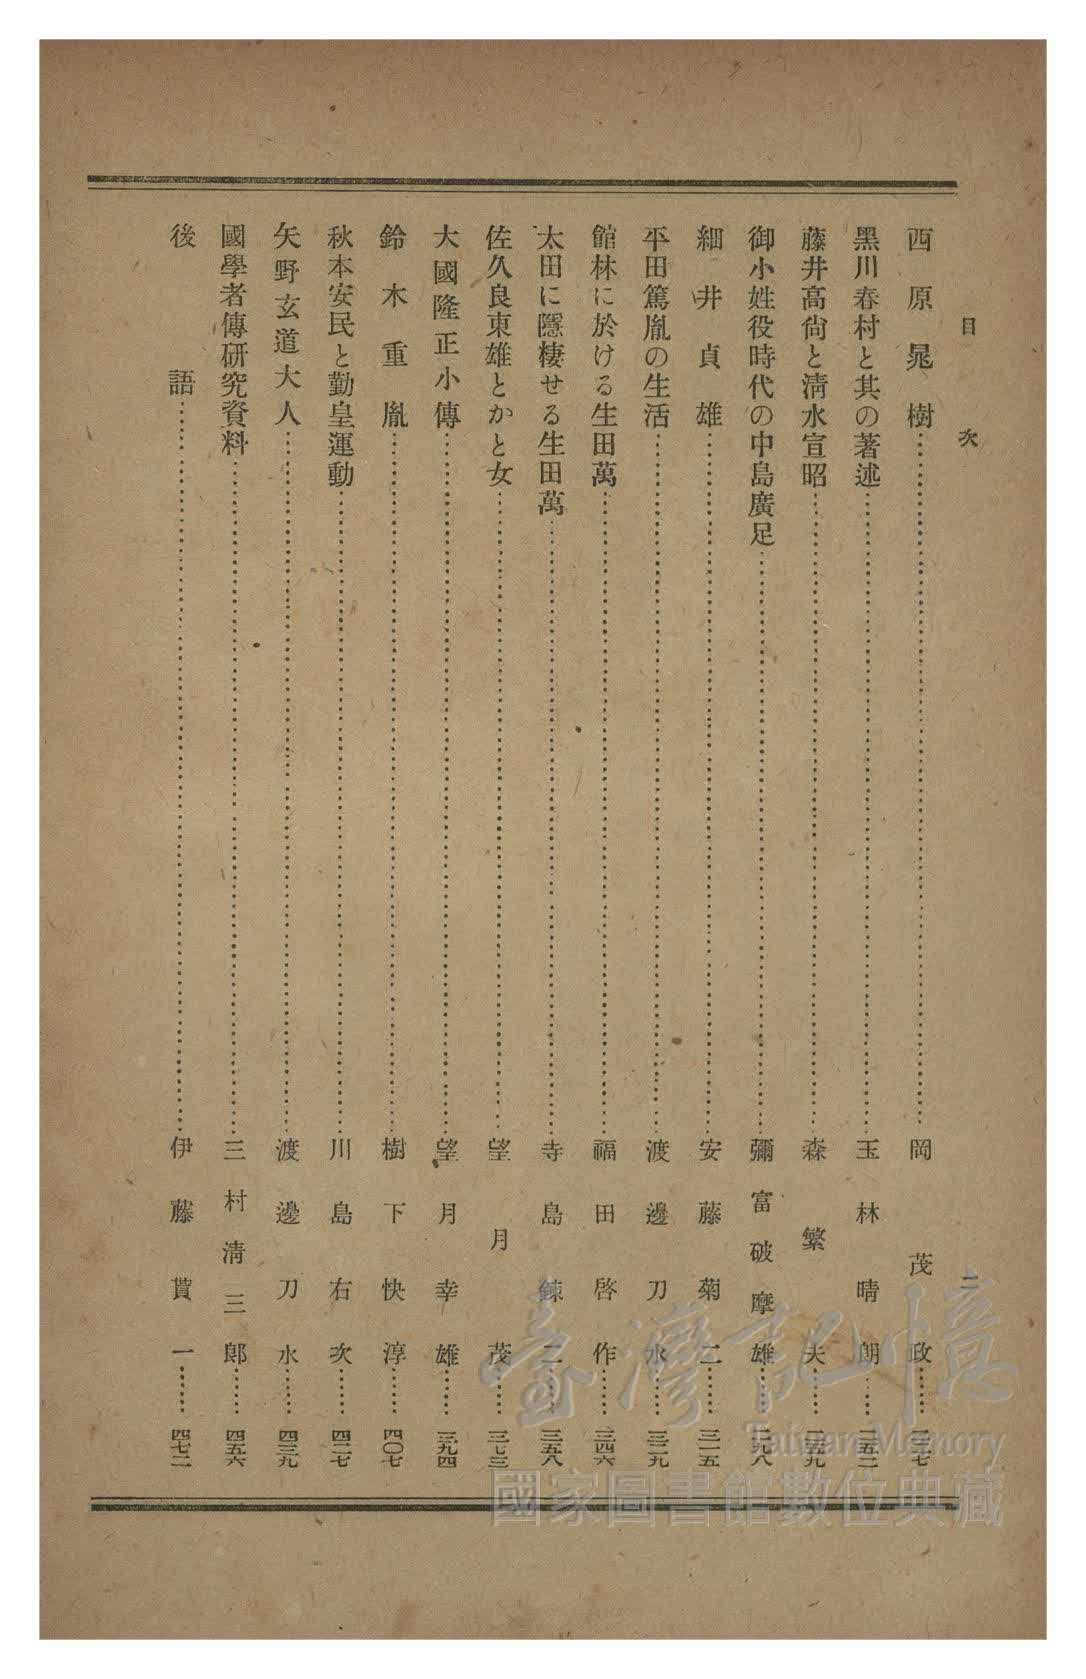 目次
二
西原晁樹……岡茂政……三三七
黑川春村と其の著述……玉林晴朗……
藤井高尙と淸水宣昭……森繁夫……
御小姓役時代の中島廣足……彌富破摩雄……二九八
細井貞雄……安藤菊二……三一五
平田篤胤の生活……渡邊刀水……三二九
館林に於ける生田萬……福田啓作……三四六
太田に隱棲せる生田萬……寺島錬二……三五八
佐久良東雄とかと女……望月茂……三七三
大國隆正小傳……望月幸雄……三九四
鈴木重胤……樹下快淳……四〇七
秋本安民と勤皇運動……川島右次……四二七
矢野玄道大人……渡邊刀水……四三九
國學者傳硏究資料……三村淸三郞……四五六
後語……伊藤貰一……四七二
臺灣記憶
Taiwan Memory
國家圖書館數位典藏